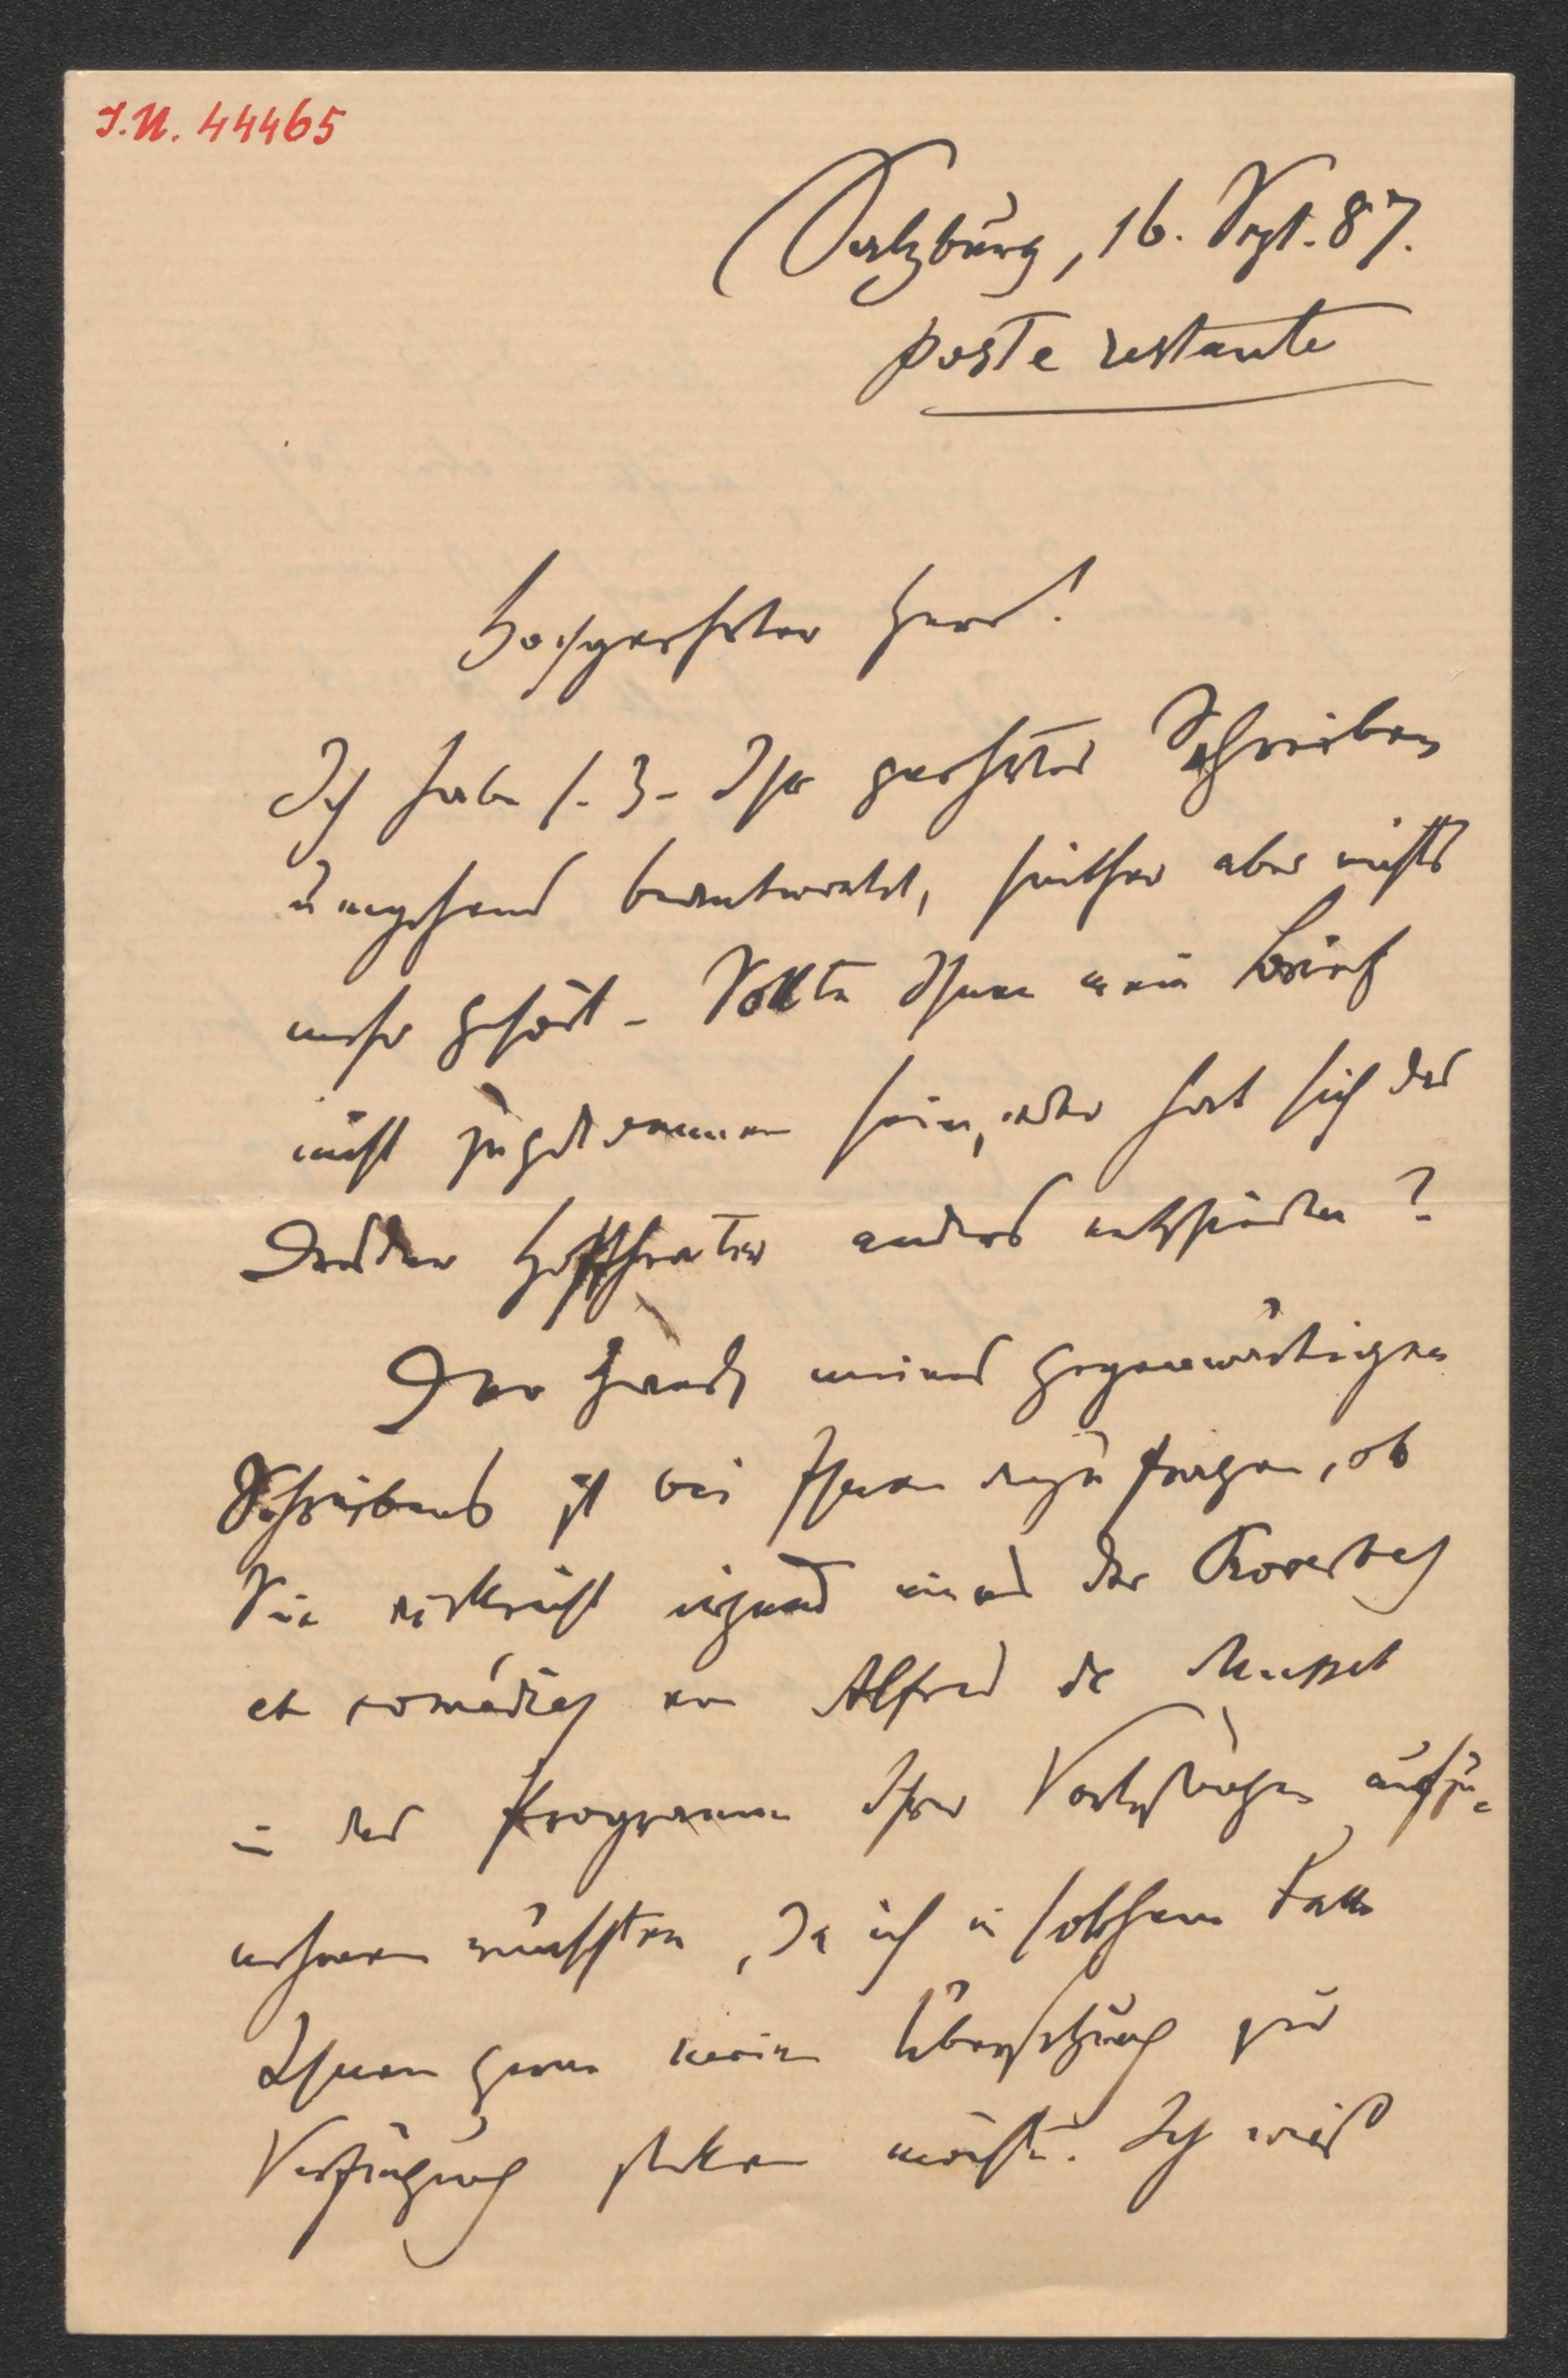 J.N. 44465
Salzburg, 16. Sept. 87.
poste restante
Hochgeehrter Herr!
Ich habe s. Z. Ihr geehrtes Schreiben
umgehend beantwortet, seither aber nichts
mehr gehört. Sollte Ihnen mein Brief
nicht zugekommen sein, oder hat sich das
Dresdner Hoftheater anders entschieden?
Der Zweck meines gegenwärtigen
Schreibens ist bei Ihnen anzufragen, ob
Sie vielleicht irgend eines der Proverbes
et comédies von Alfred de Musset
in das Programm Ihrer Vorlesungen aufzu-
nehmen wünschten, da ich in solchem Falle
Ihnen gerne meine Übersetzung zur
Verfügung stellen möchte. Ich weiß